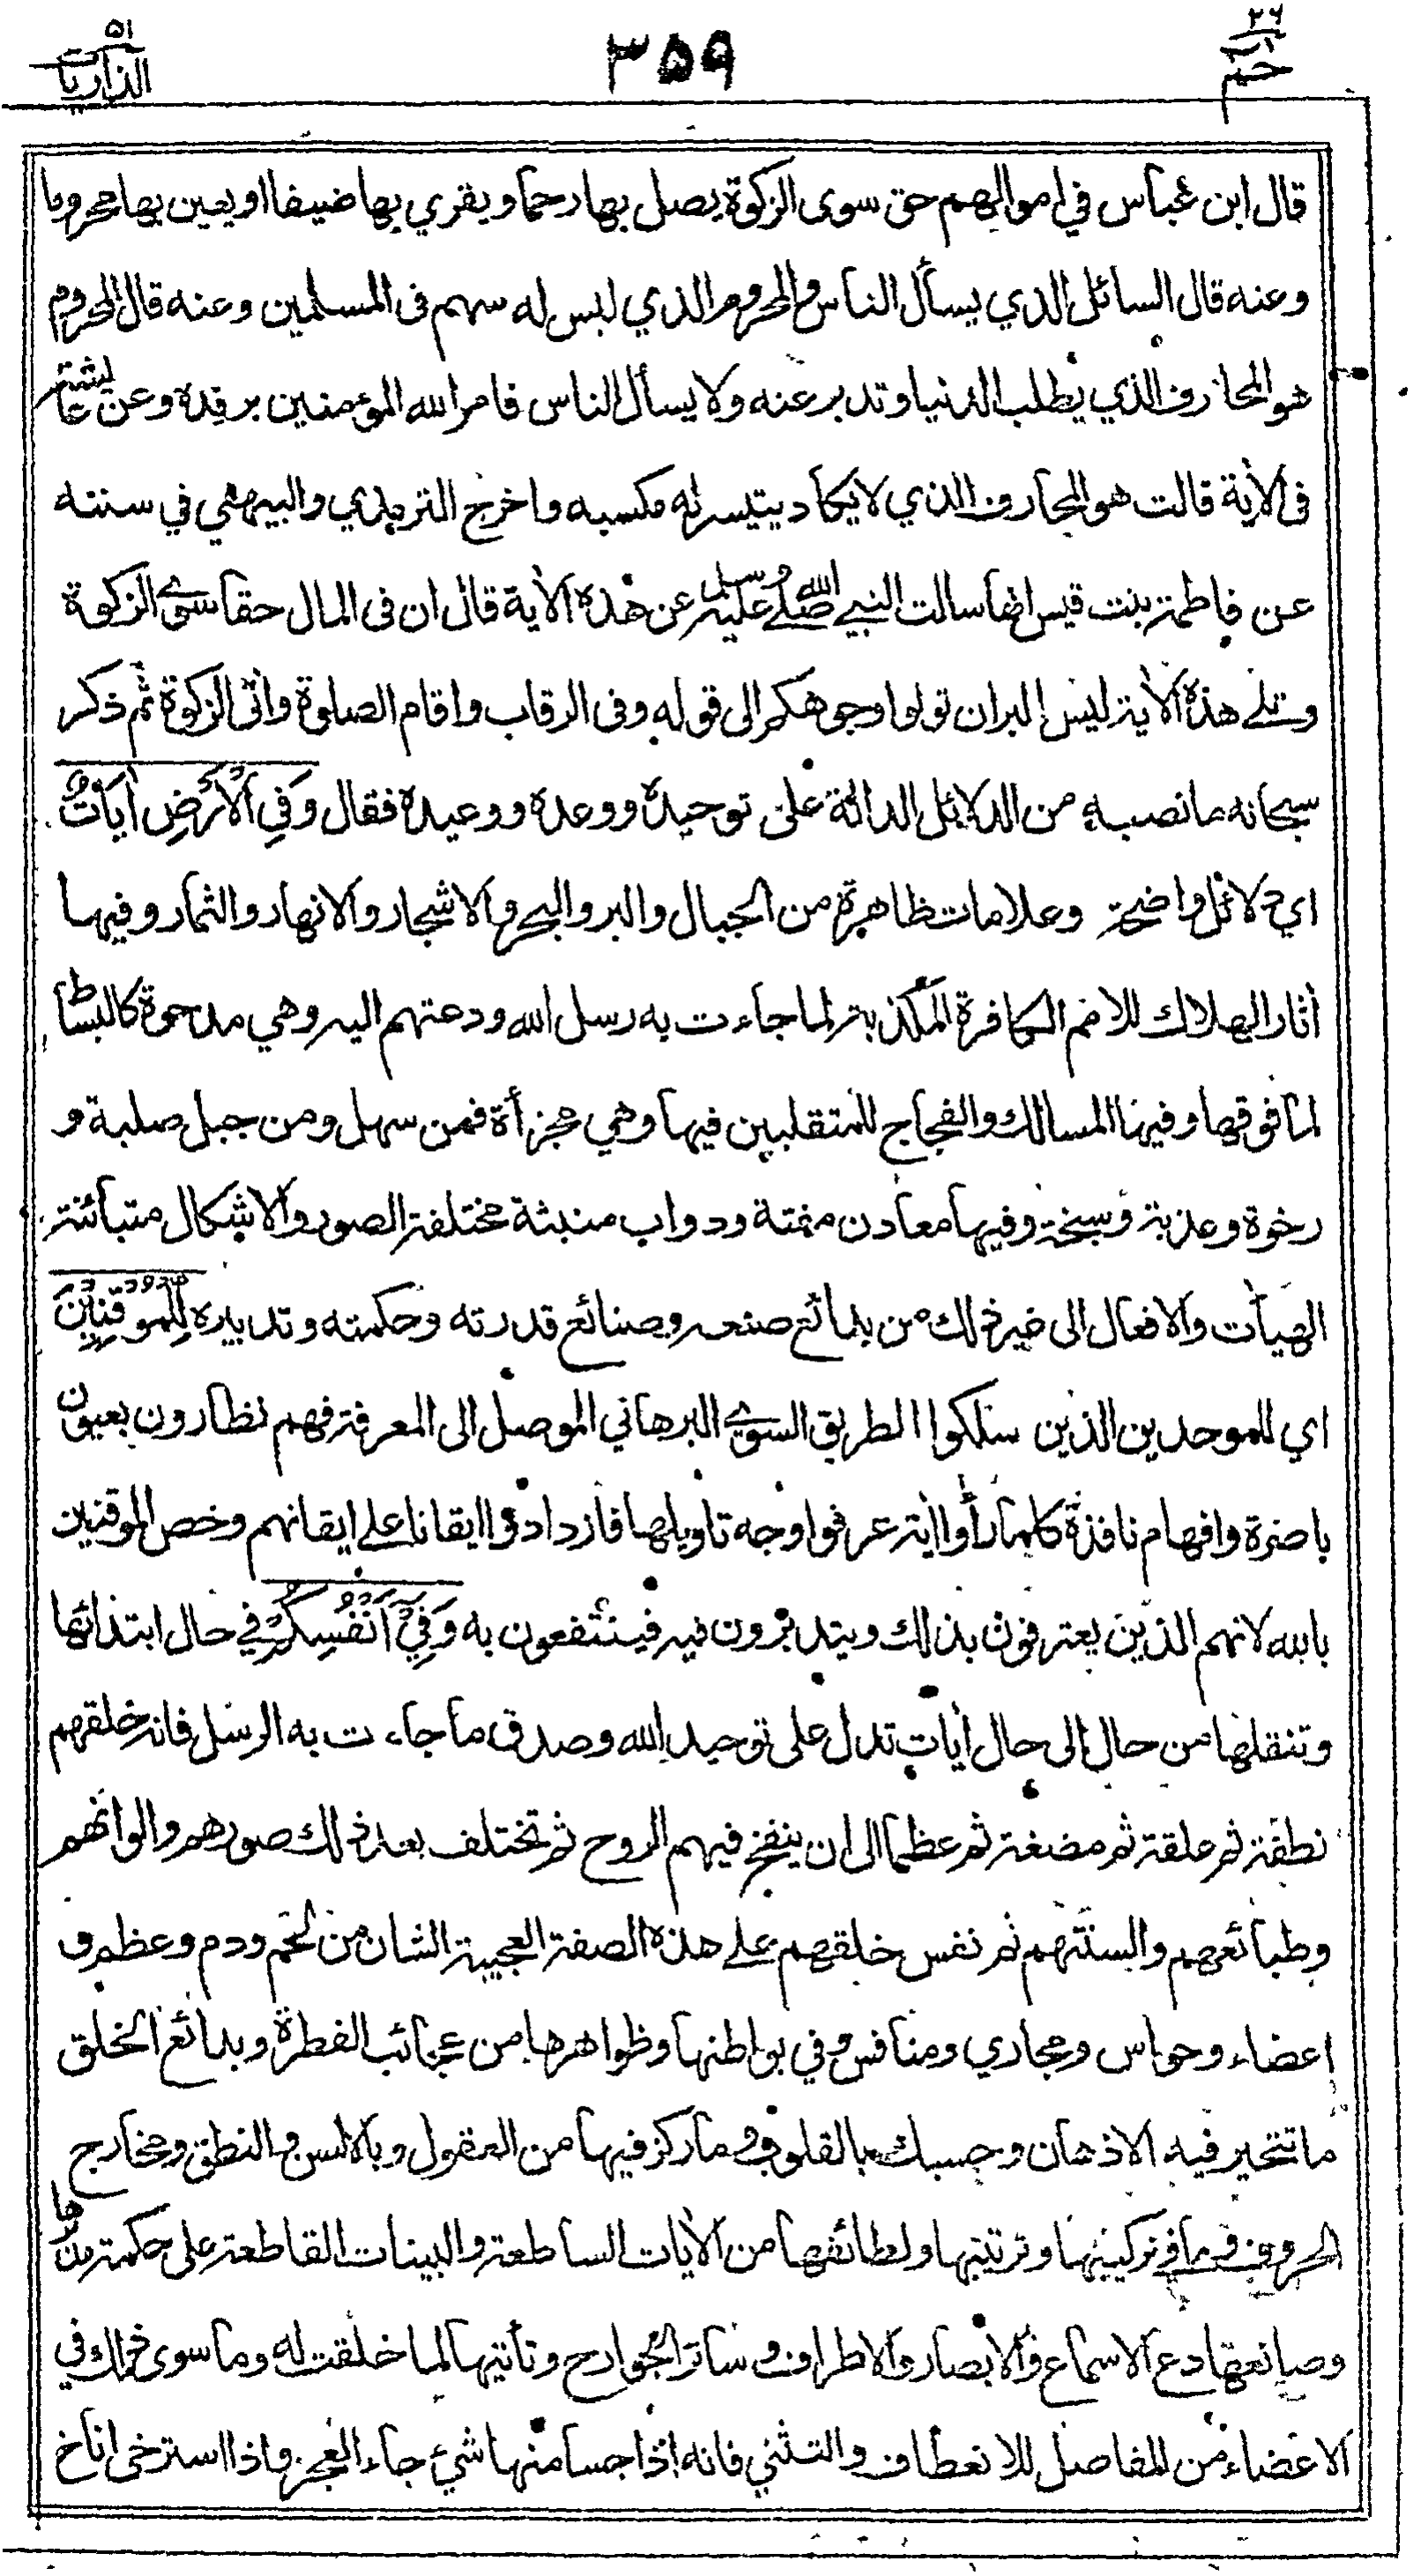 ٢٦ حٰم
٣٥٩
٥١ الذاريات
قال ابن عباس في اموالهم حق سوى الزكوة يصل بها رحما ويقري بها ضيفا او يعين بها محروما
وعنه قال السائل الذي يسأل الناس والمحروم الذي ليس له سهم فى المسلمين وعنه قال المحروم
هو المحارف الذي يطلب الدنيا وتدبر عنه ولا يسأل الناس فامر الله المؤمنين برفده وعن عائشة
فى الأية قالت هو المحارف الذي لا يكاد يتيسر له مكسبه واخرج الترمذي والبيهقي في سننه
عن فاطمة بنت قيس انها سالت النبي صلى الله عليه وسلم عن هذه الأية قال ان فى المال حقا سوى الزكوة
وتلى هذه الأية ليس البر ان تولوا وجوهكم الى قوله وفى الرقاب واقام الصلوة وأتى الزكوة ثم ذكر
سبحانه ما نصبه من الدلائل الدالة على توحيده ووعده ووعيده فقال وَفِي الْأَرْضِ أيَاتٌ
اي دلائل واضحة وعلامات ظاهرة من الجبال والبر والبحر والاشجار والانهار والثمار وفيها
أثار الهلاك للامم الكافرة المكذبة لما جاءت به رسل الله ودعتهم اليه وهي مدحوة كالبساط
لما فوقها وفيها المسالك والفجاج للمتقلبين فيها وهي مجزأة فمن سهل ومن جبل صلبة و
رخوة وعذبة وسبخة وفيها معادن مفتتة ودواب منبثة مختلفة الصور والاشكال متبائنة
الهيأت والافعال الى غير ذلك من بدائع صنعه وصنائع قدرته وحكمته وتدبيره لِلْمُوقِنِيْنَ
اي للموحدين الذين سلكوا الطريق السوي البرهاني الموصل الى المعرفة فهم نظارون بعيون
باصرة وافهام نافذة كلما رأوا أية عرفوا وجه تاويلها فازدادوا ايقانا على ايقانهم وخص الموقنين
بالله لانهم الذين يعترفون بذلك ويتدبرون فيه فينتفعون به وَفِيْ اَنْفُسِكُمْ في حال ابتدائها
وتنقلها من حال الى حال أيات تدل على توحيد الله وصدق ما جاءت به الرسل فانه خلقهم
نطفة ثم علقة ثم مضغة ثم عظما الى ان ينفخ فيهم الروح ثم تختلف بعد ذلك صورهم والوانهم
وطبائعهم والسنتهم ثم نفس خلقهم على هذه الصفة العجيبة الشان من لحم ودم وعظم و
اعضاء وحواس ومجاري ومنافس وفي بواطنها وظواهرها من عجائب الفطرة وبدائع الخلق
ما تتحير فيه الاذهان وحسبك بالقلوب وما ركز فيها من العقول وبالالسن والنطق ومخارج
الحروف وما في تركيبها وترتيبها ولطائفها من الأيات الساطعة والبينات القاطعة على حكمة مدبرها
وصانعها دع الاسماع والابصار والاطراف وسائر الجوارح وتأتيها لما خلقت له وما سوى ذلك في
الاعضاء من المفاصل للانعطاف والتثني فانه اذا جسا منها شيء جاء العجز واذا استرخى اناخ